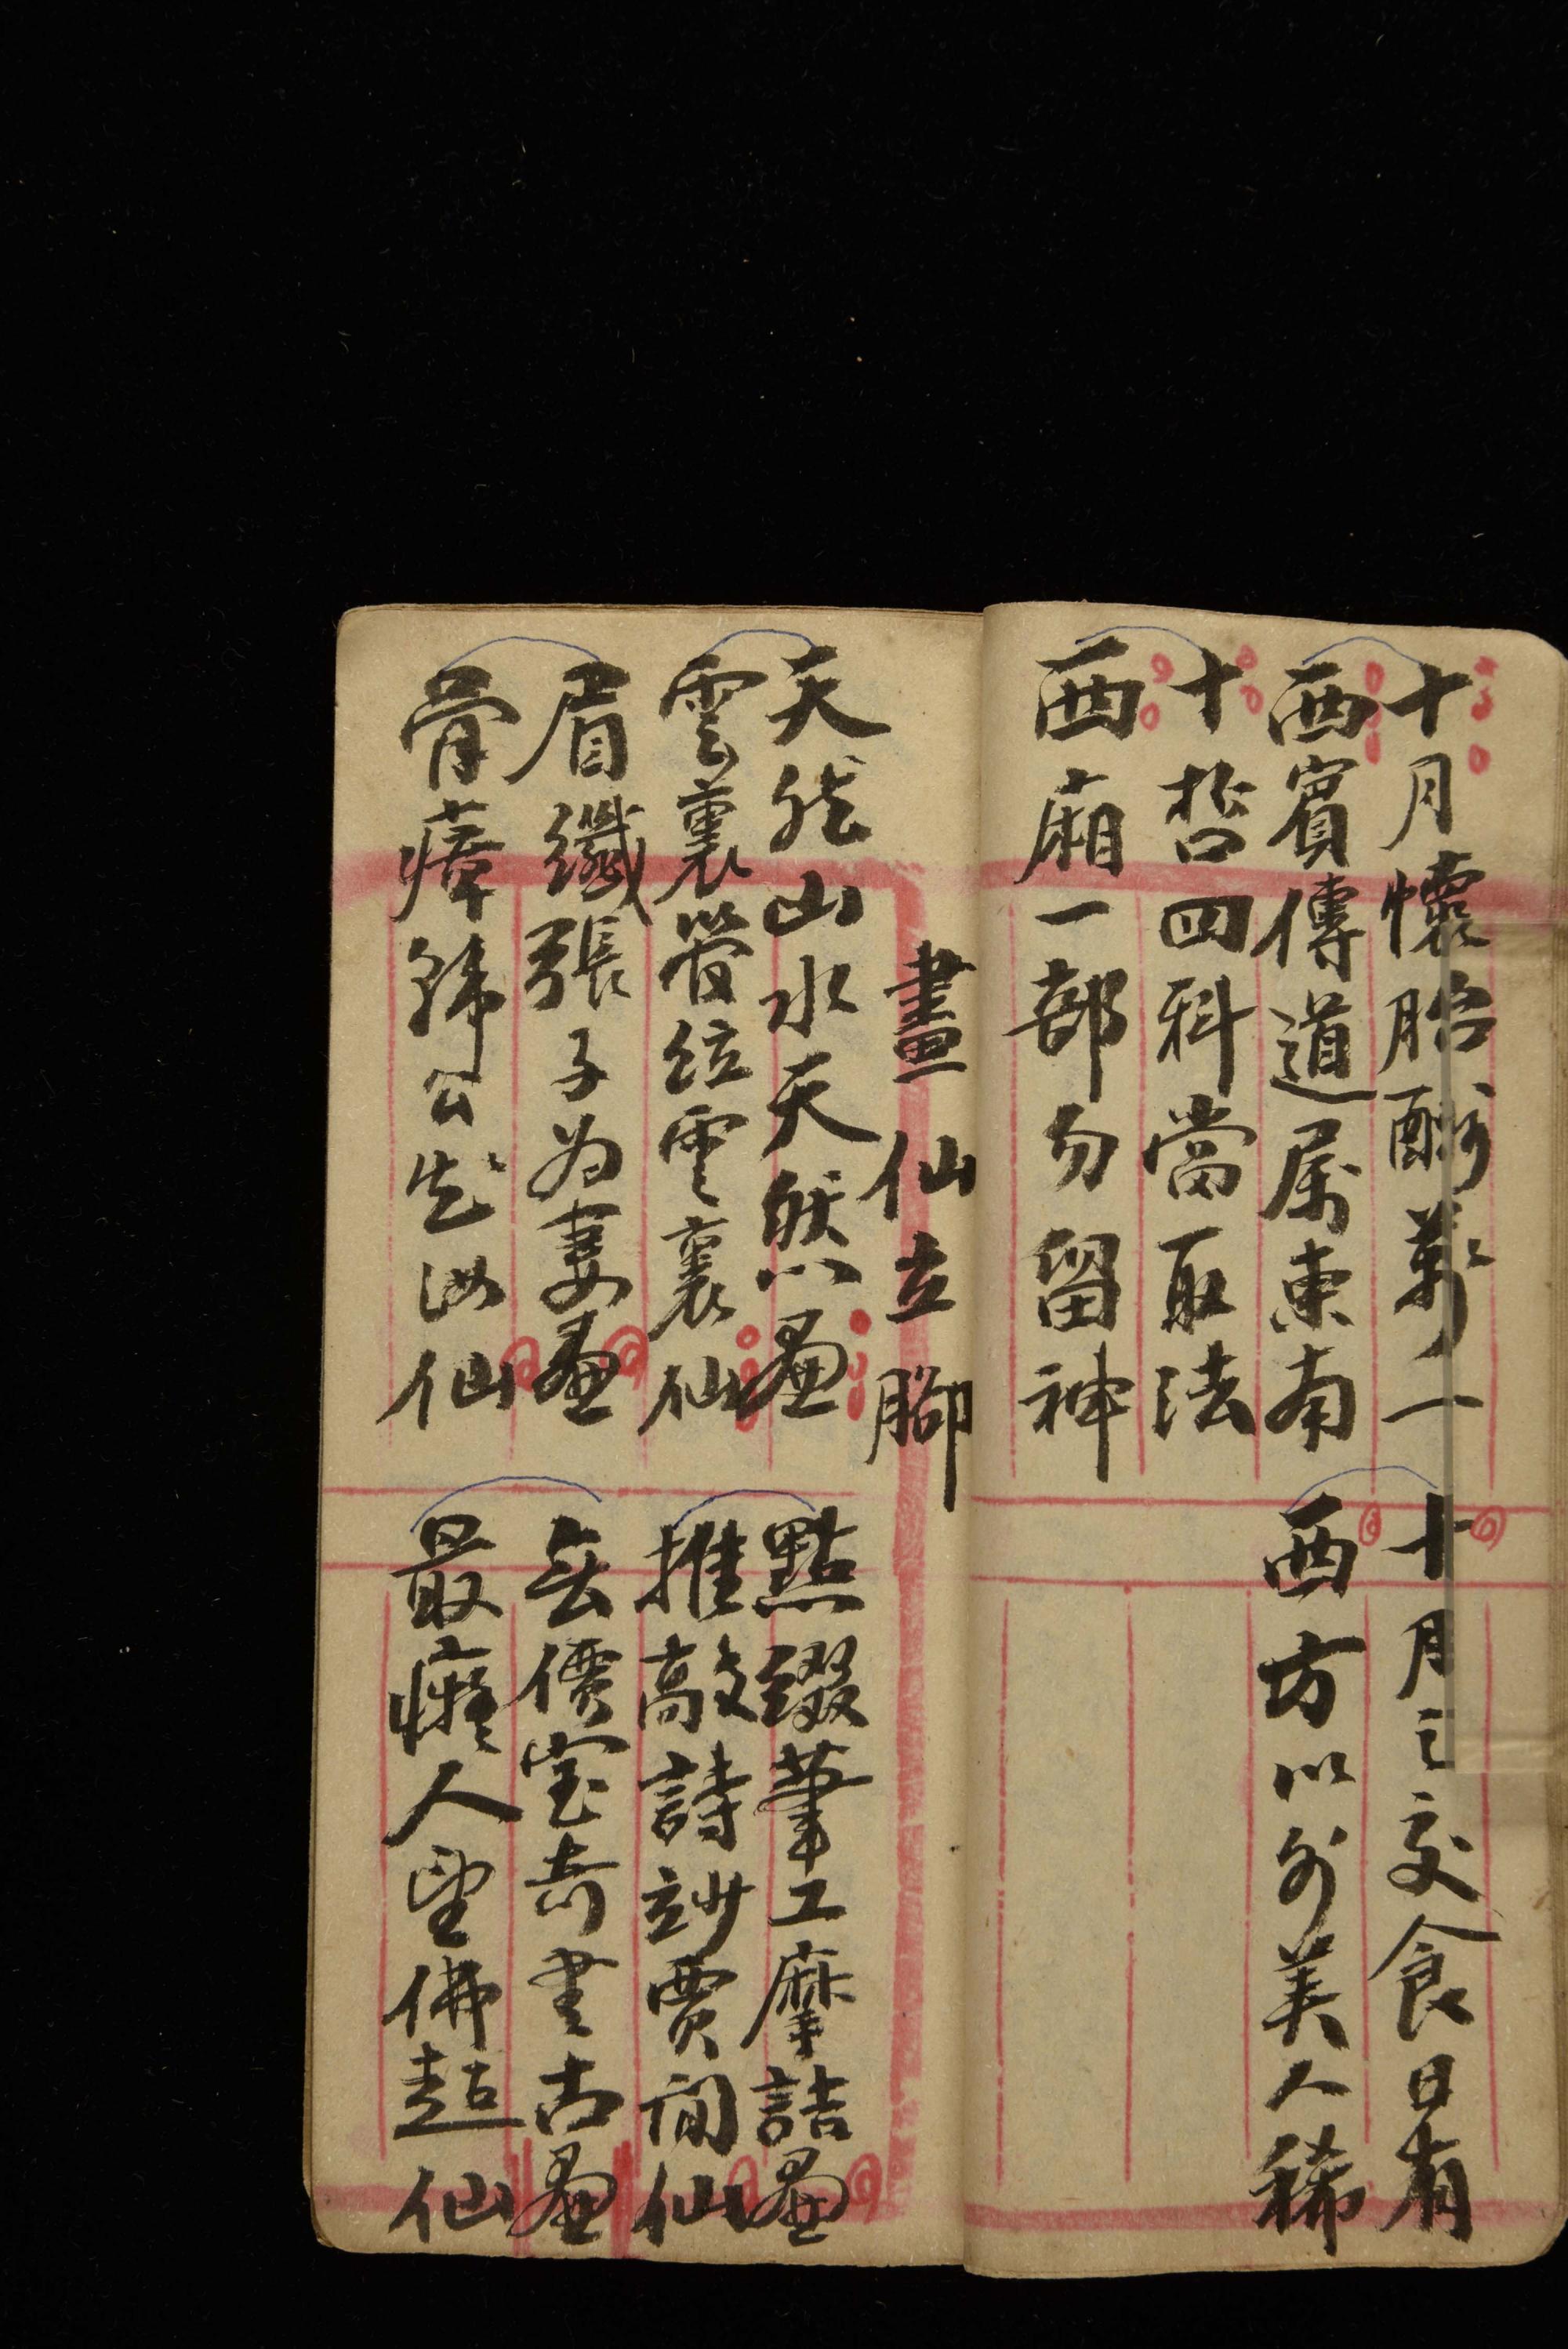 十月懷胎酬萬一
西賓傳道属東南
十哲四科當取法
西廂一部勿留神
十月之交食日有
西方以外美人稀
畫仙立腳
天然山水天然畫
雲裏管絃雲裏仙
眉纖張子为妻畫
骨韓公汝仙
點綴筆工摩詰畫
推敲詩妙賈閬仙
無價宝奇書古畫
最癡人望佛超仙